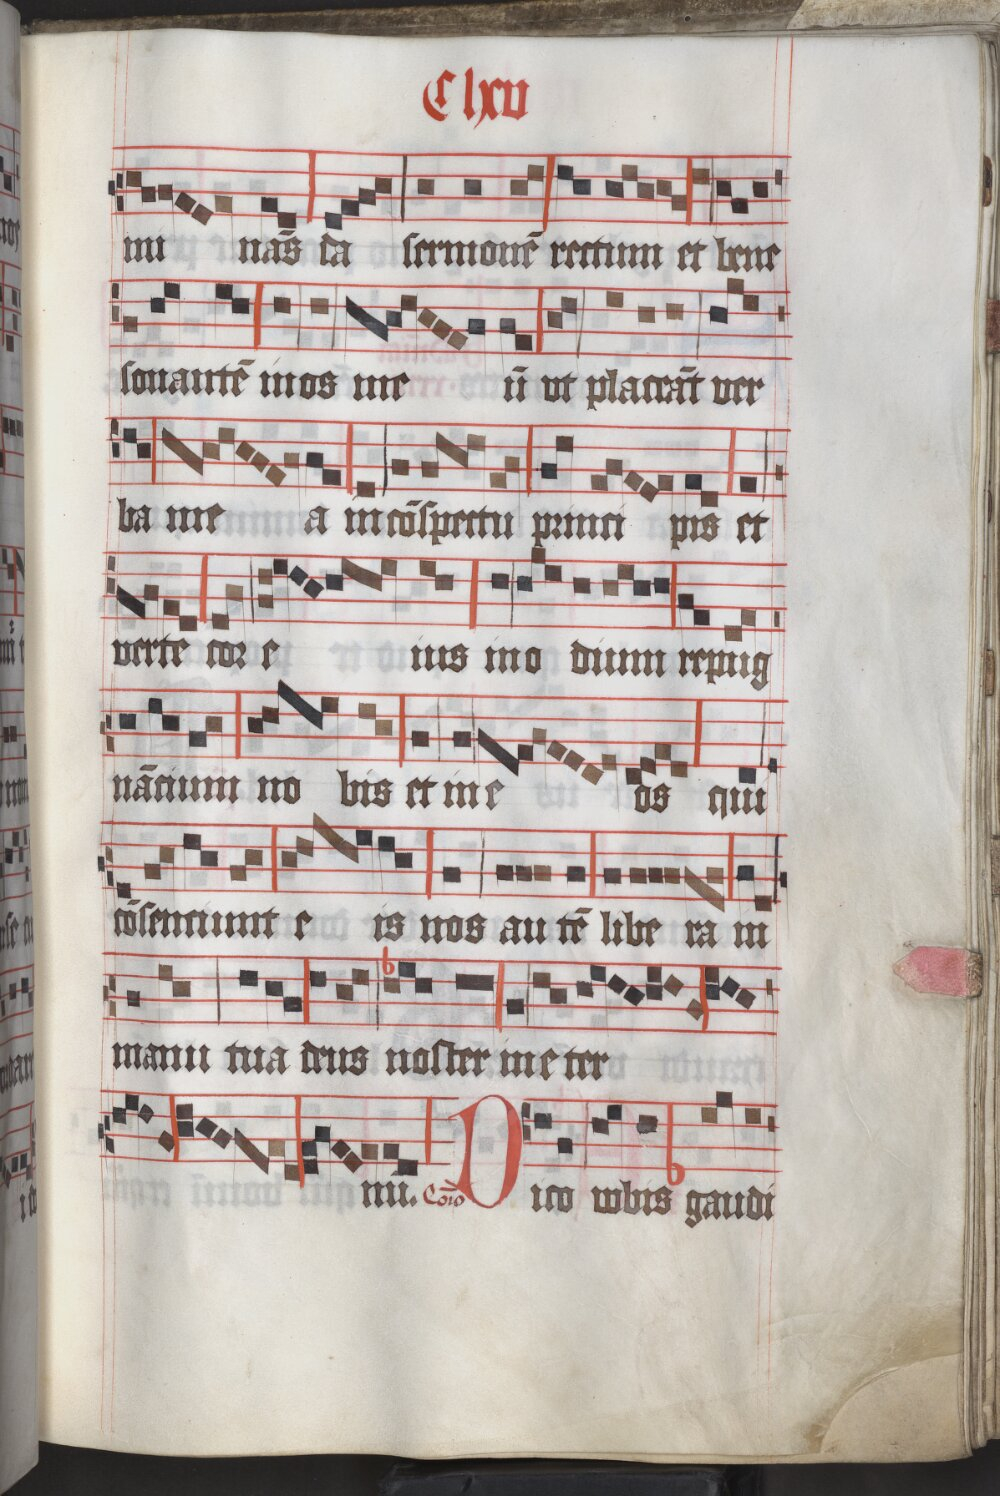 Clxv
mi nās da sermonē rectum et bene
sonantē in os me ū vt placeāt ver
ba me a in cōspectu princi pis et
verte cor e ius in o dium repug
nācium no bis et in e os qui
cōsenciunt e is nos au tē libe ra in
manu tua deus noster in e ter
nū. Cōīo Dico vobis gaudi